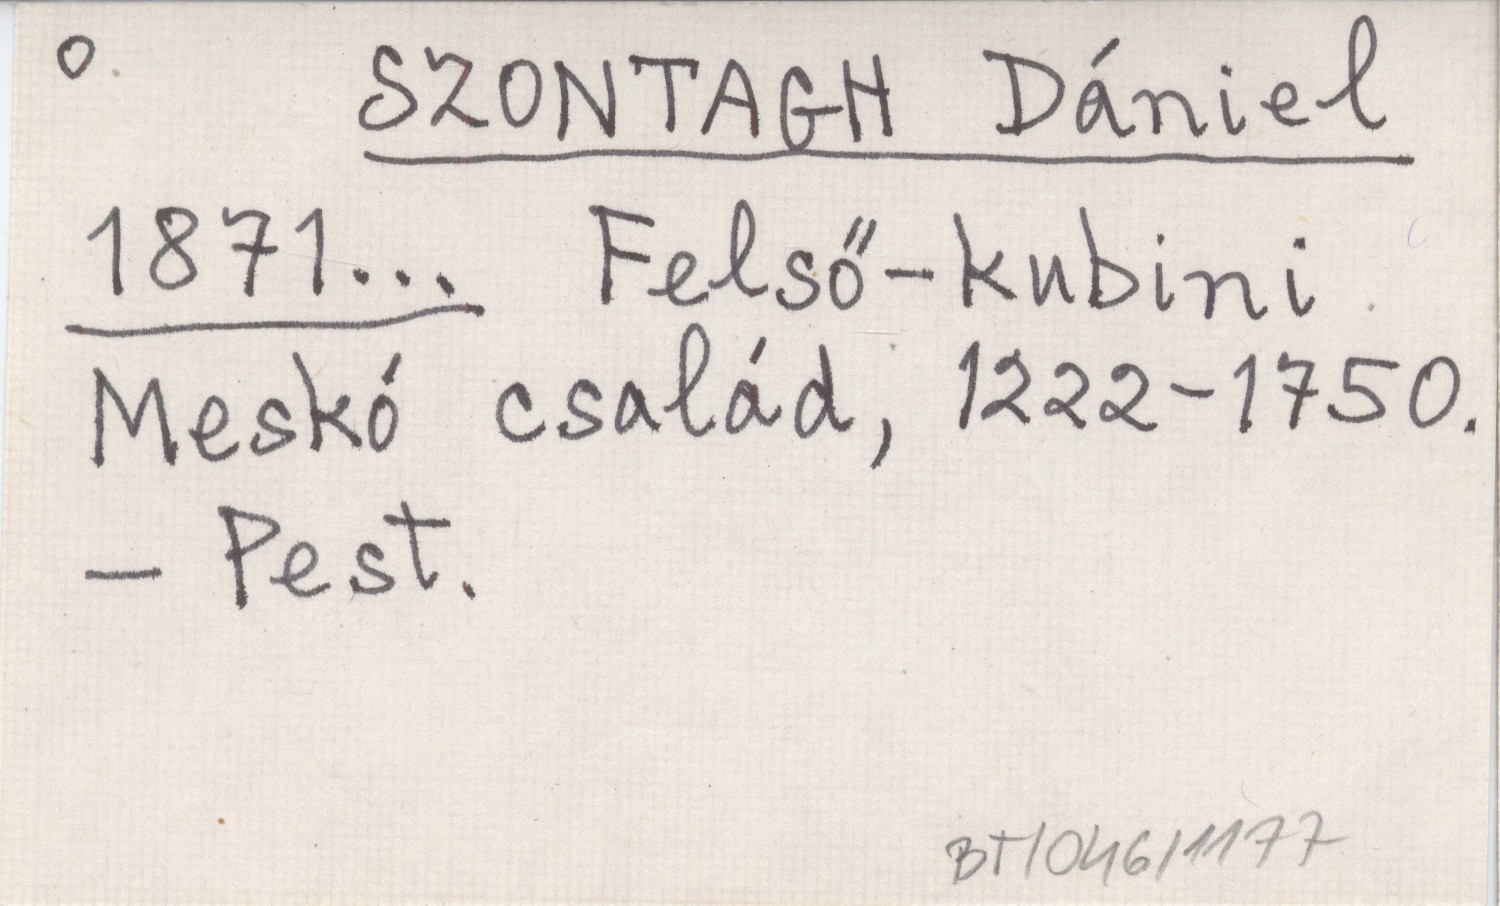 o. SZONTAGH Dániel
1871... Felső-kubini
Meskó család, 1222-1750.
– Pest.
BT/046/1177